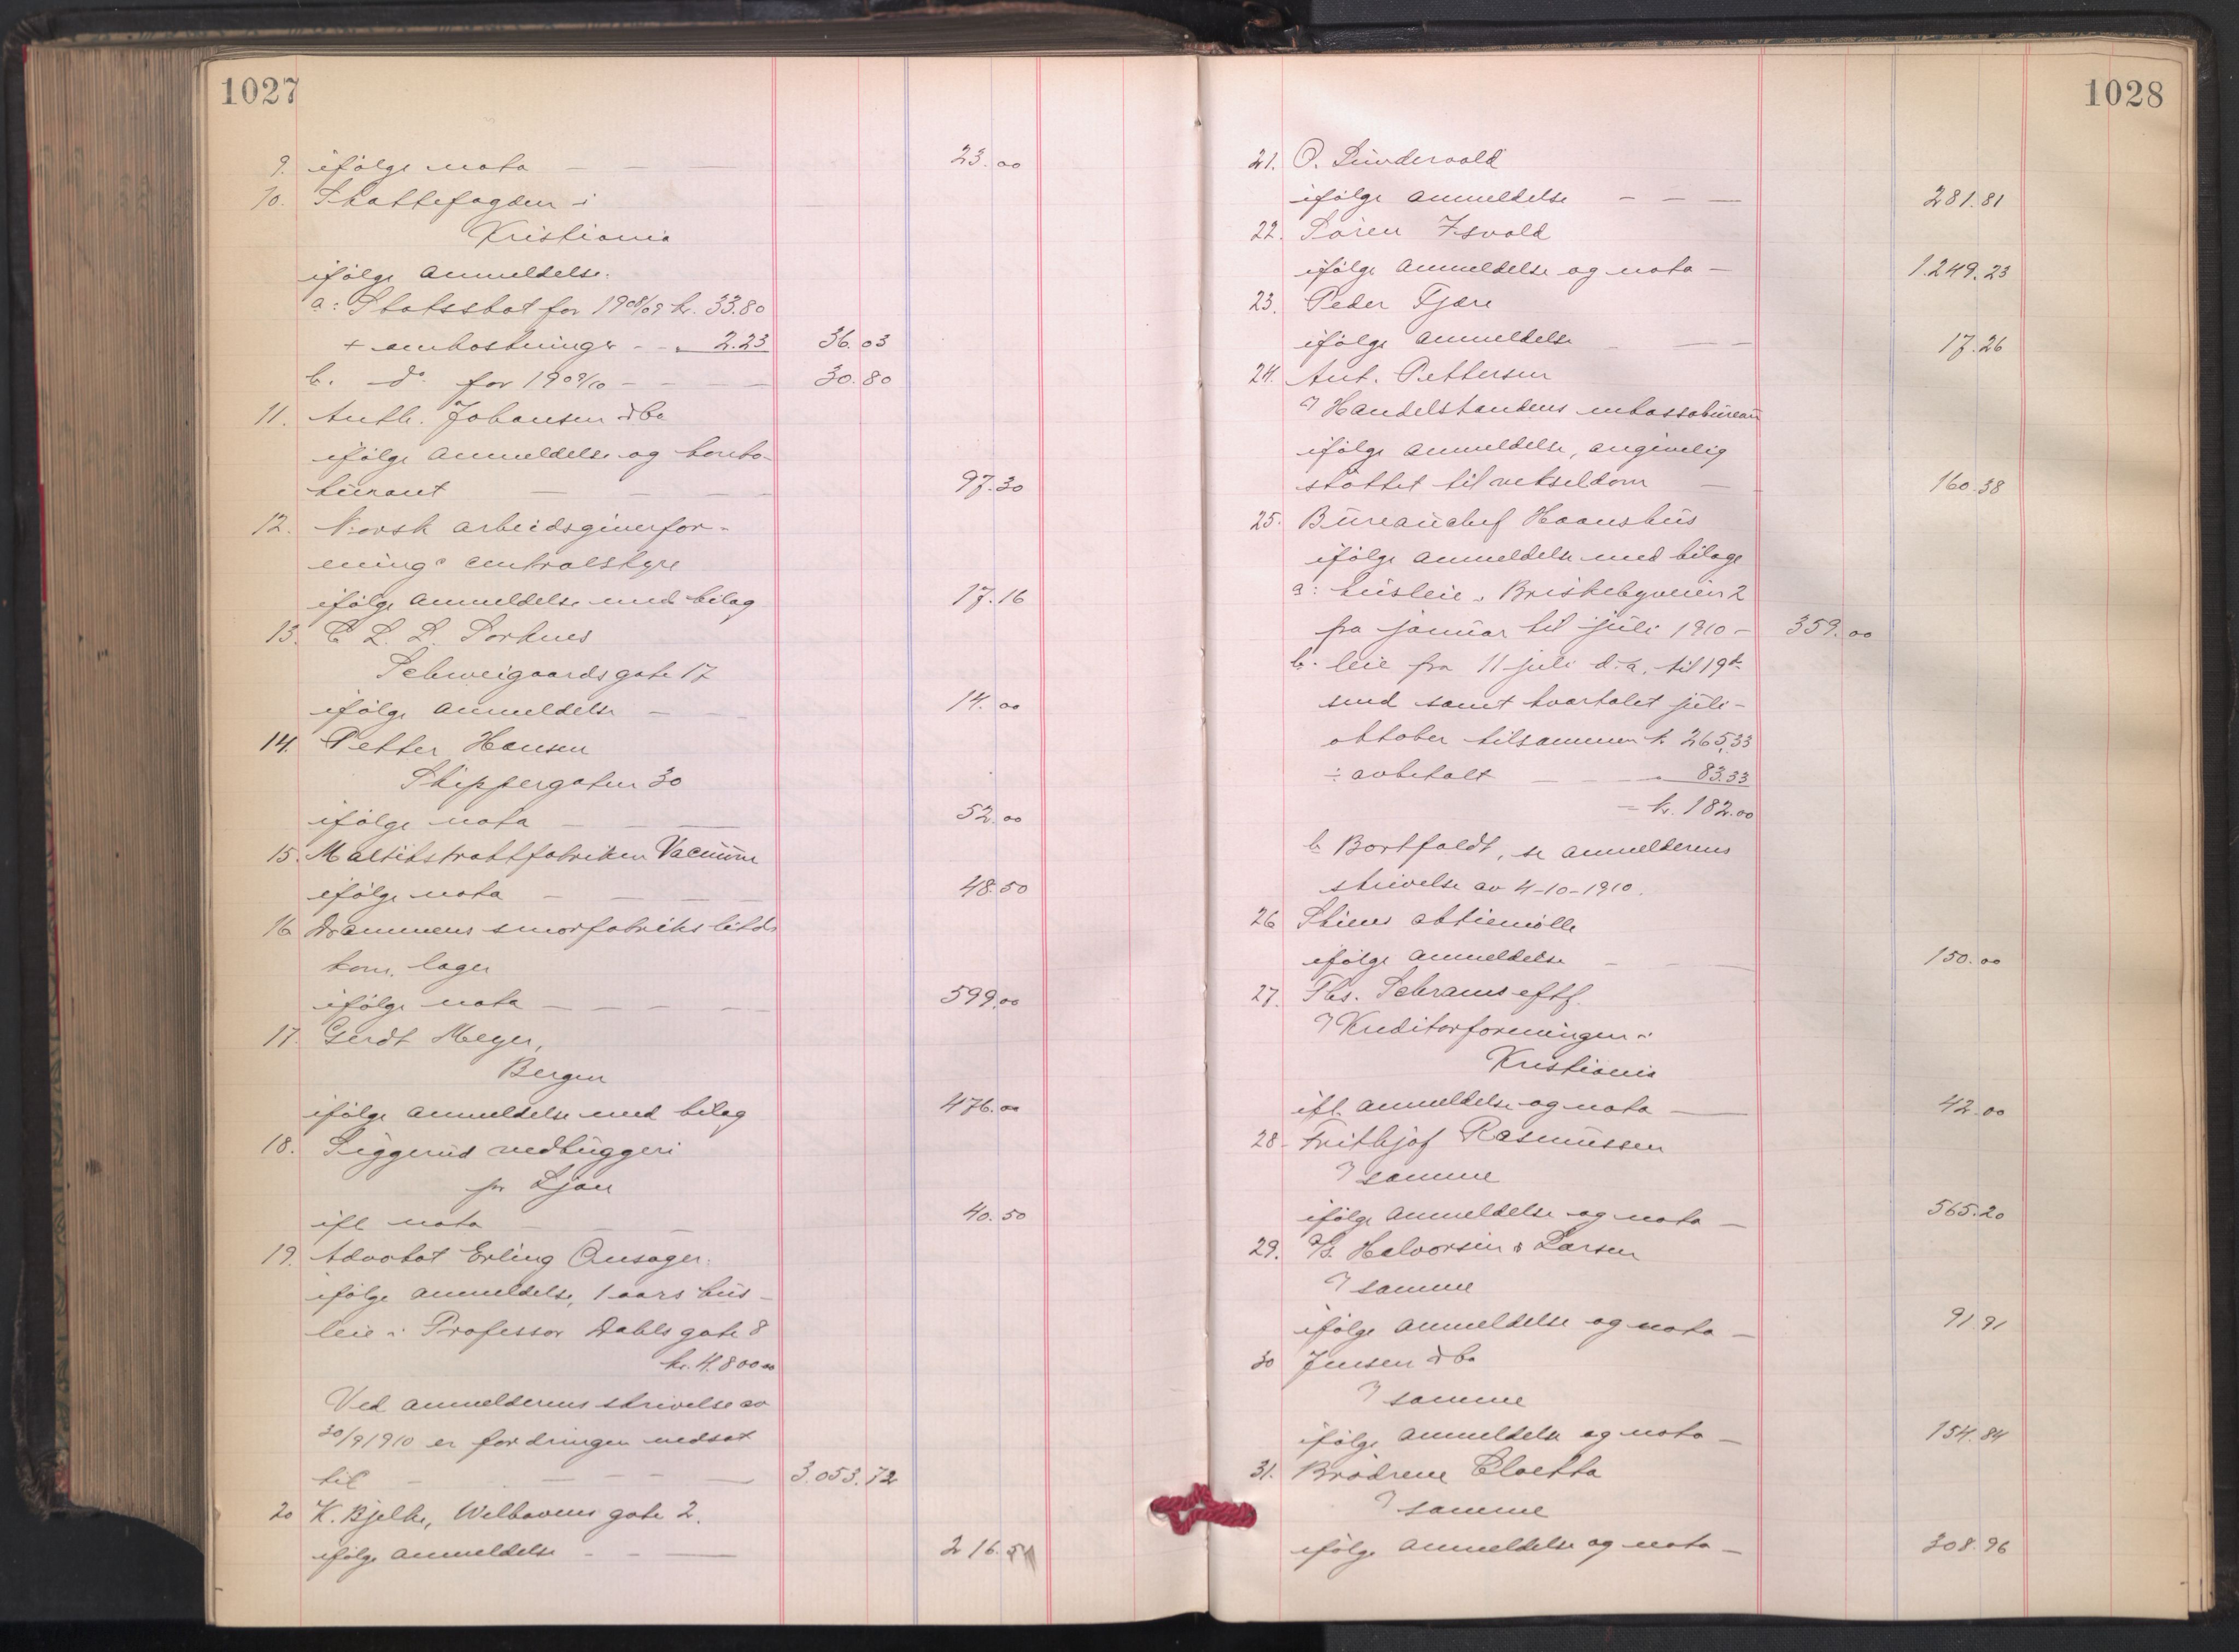 1027
9. ifölge nota — — — 23.00
10. Skattefogden i
Kristiania
ifölge anmeldelse.
a: Statsskat for 1908/09 kr. 33.80
+ omkostninger - - " 2.23 36.03
b. do for 1909/10 - - - 30.80
11. Anth. Johansen & Co
ifölge anmeldelse og konto-
kurant — — — — 97.30
12. Norsk arbeidsgiverfor-
enings centralstyre
ifölge anmeldelse med bilag 17.16
13. C. L. L. Sorknes
Schweigaardsgate 17
ifölge anmeldelse — — 14.00
14. Petter Hansen
Skippergaten 30
ifölge nota — — — 52.00
15. Maltekstraktfabriken Vacuum
ifölge nota — — — — 48.50
16 Drammens smörfabriks litds
kom. lager
ifölge nota — — — — 599.00
17. Gerdt Meyer,
Bergen
ifölge anmeldelse med bilag 476.00
18. Siggerud vedhuggeri
pr Ljan
ifl nota — — — 40.50
19. Advokat Erling Ansager.
ifölge anmeldelse, 1 aars hus-
leie i Professor Dahls gate 8
kr. 4.800.00
Ved anmelderens skrivelse av
30/9 1910 er fordringen nedsat
til — — — — 3.053.72
20 K. Bjelke, Welhavens gate 2.
ifölge anmeldelse - - — 216.51
1028
21. O. Sundervold
ifölge anmeldelse — — — 281.81
22. Sören Isvold
ifölge anmeldelse og nota — 1.249.23
23. Peder Fjære
ifölge anmeldelse — — 17.26
24. Ant. Pettersen
Handelstandens inkassobureau
ifölge anmeldelse, angivelig
støttet til vekseldom — 160.38
25. Bureauchef Haanshus
ifölge anmeldelse med bilage
a: husleie, Briskebyveien 2
fra januar til juli 1910 - 359.00
b. leie fra 11 juli d.a. til 19de
smd samt kvartalet juli-
oktober tilsammen kr. 265.33
÷ avbetalt — — — " 83.33
= kr. 182.00
b Bortfaldt, se anmelderens
skrivelse av 4-10-1910.
26 Skiens aktiemölle
ifölge anmeldelse — — 150.00
27. Ths. Schrams eftf.
Kreditorforeningen i
Kristiania
ifl. anmeldelse og nota — 42.00
28 - Frithjof Rasmussen
samme
ifölge anmeldelse og nota — 565.20
29. A/S. Halvorsen & Larsen
samme
ifölge anmeldelse og nota — 91.91
30 Jensen & Co
samme
ifölge anmeldelse og nota — 154.84
31. Brödrene Cloetta
samme
ifölge anmeldelse og nota — 308.96